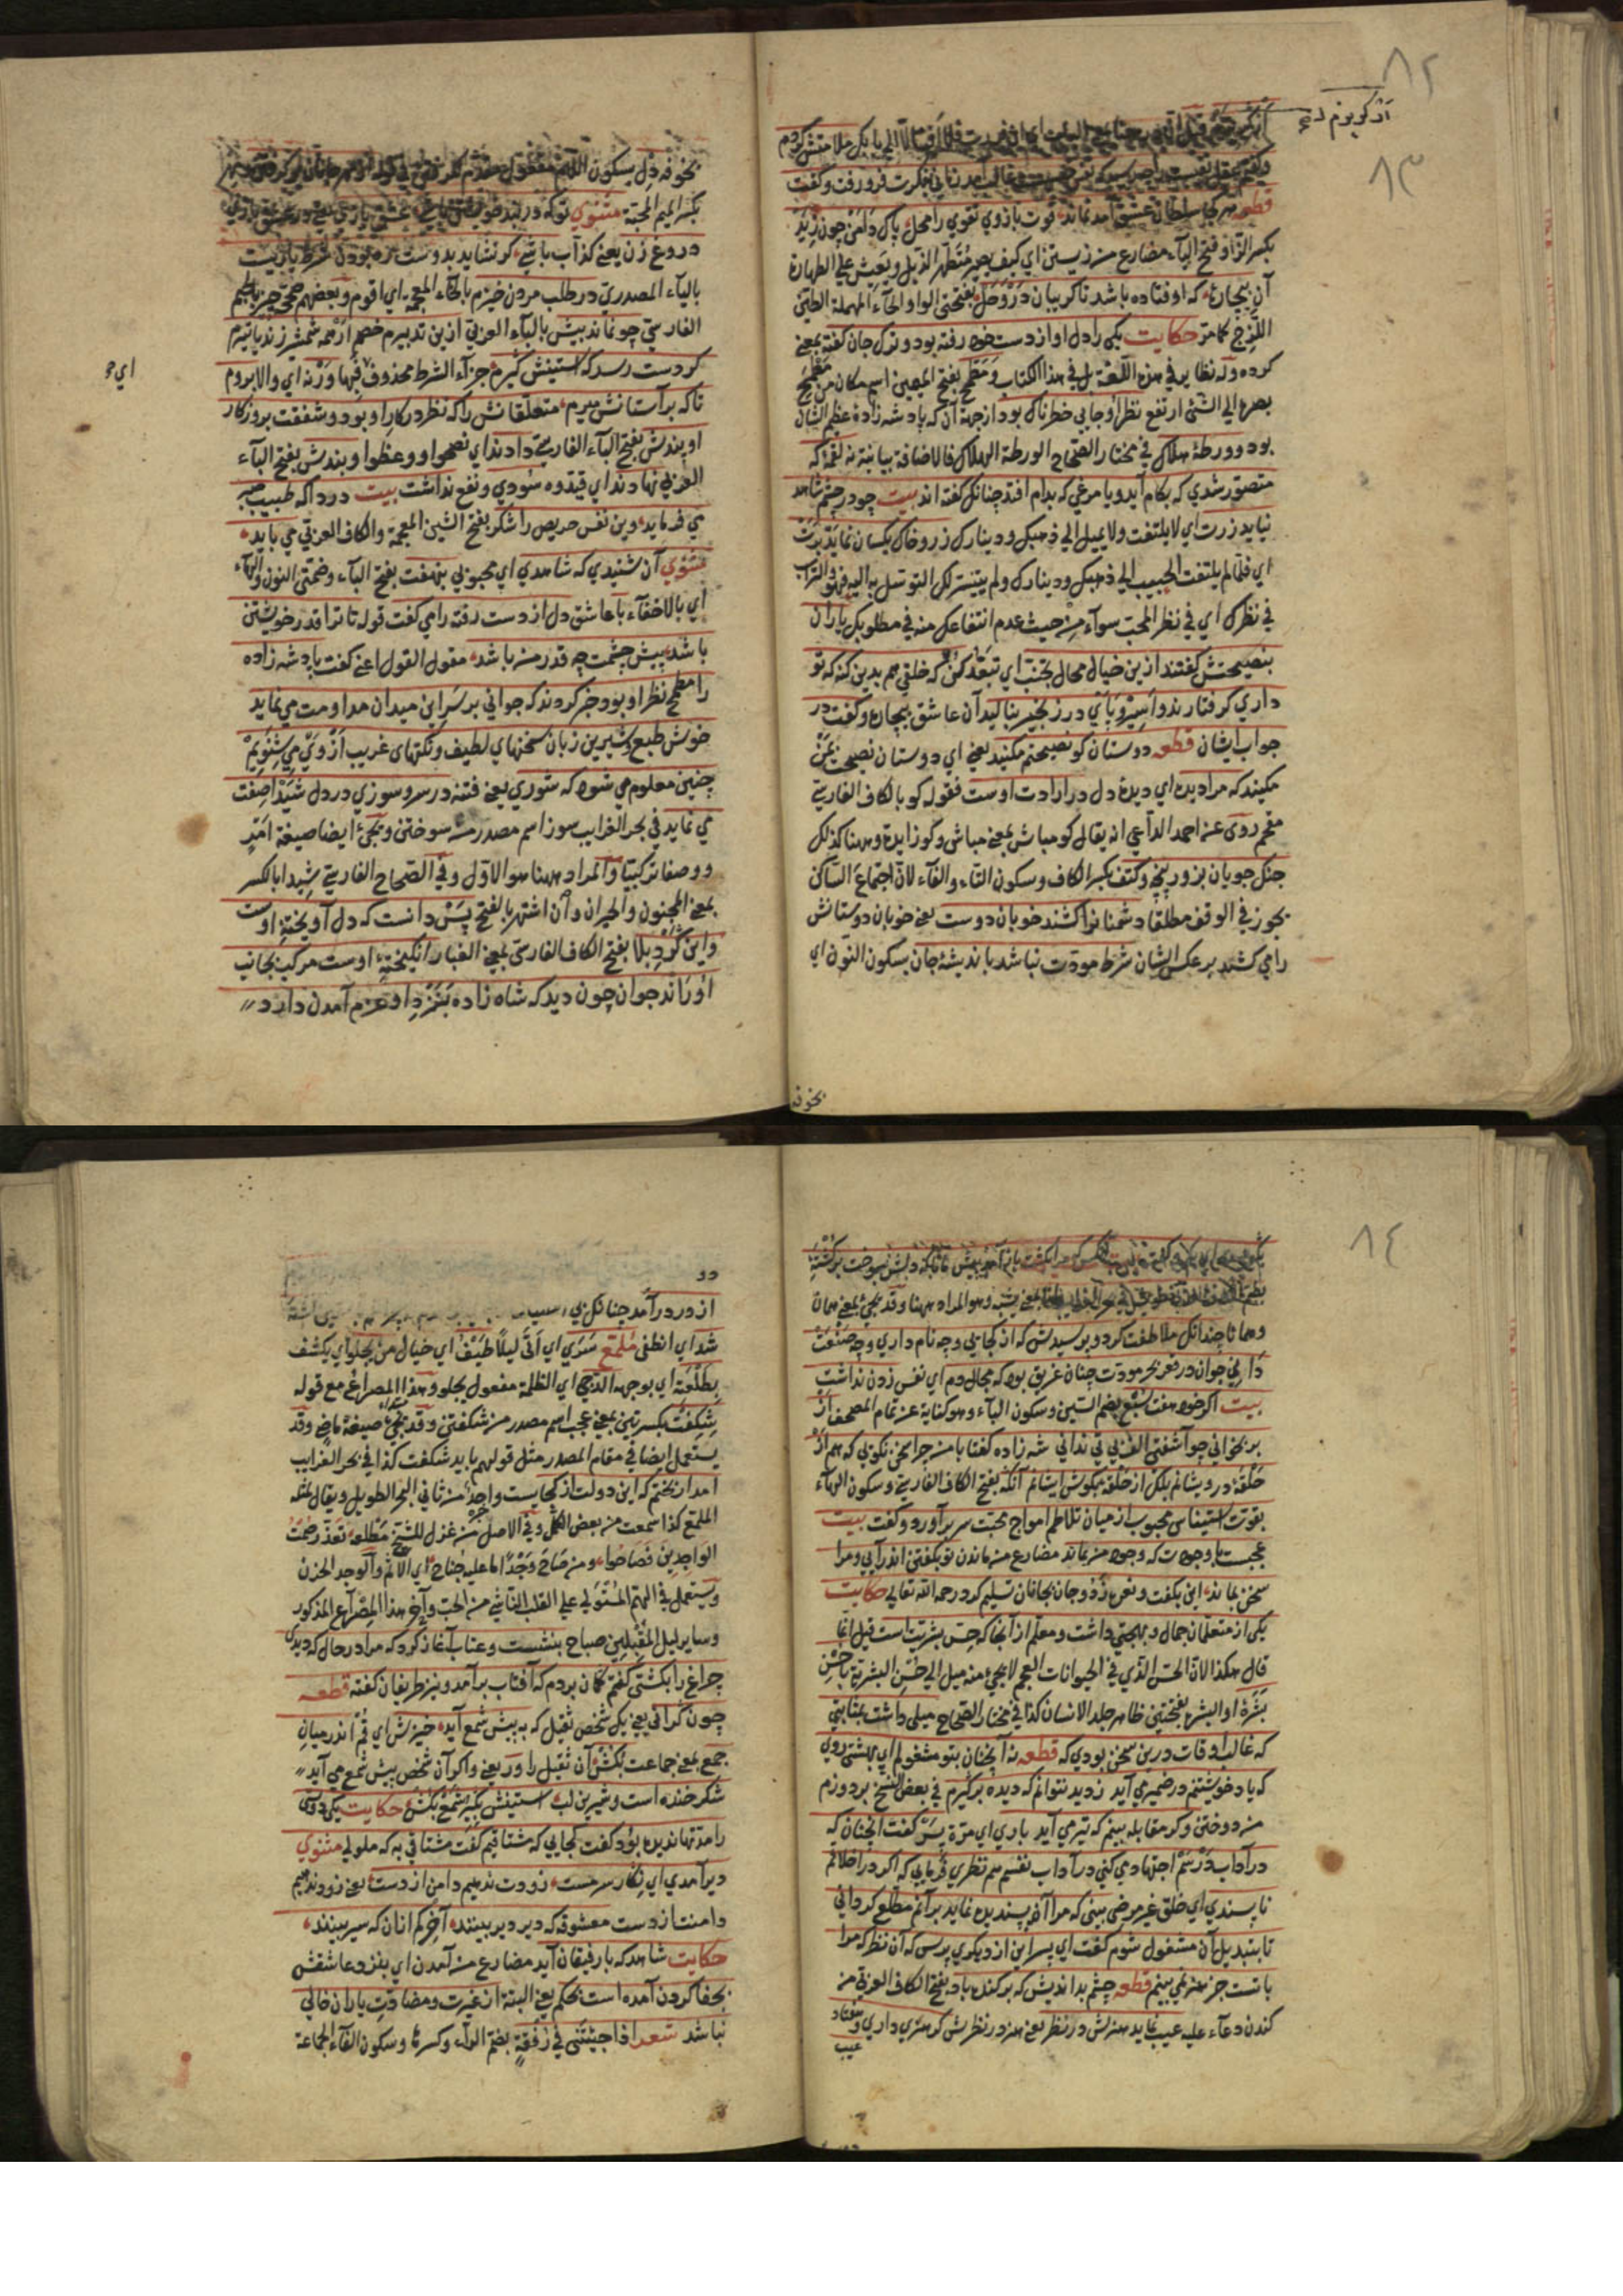 ٨٢
٨٣
قطعه هر کجا سلطان عشق آمد نماند قوت بازوي تقوي را محل پاک دامن چون زید
بکسر الزا و فتح الیاء مضارع من زیستن اي کیف یصیر متطهر الذیل و یعیش علی الطهارة
آن بیچاره که اوفتاده باشد تا کریبان در وحل بفتحتی الواو والحاء المهملة الطین
اللزج کما مر حکایت یکی را دل او از دست خود رفته بود و ترک جان کفته بمعنی
کرده وله نظایر في هذه اللغة بل في هذا الکتاب و مطمح بفتح المیمین اسم مکان من طمح
بصره الي الشئ ارتفع نظر او جایی خطرناک بود از جهة آن که پادشه زاده عظیم الشان
بود و ورطهٔ هلاک في مختار الصحاح الورطة الهلاک فالاضافة بیانیة نه لقمهٔ که
متصور شدي که بکام آید و یا مرغی که بدام افتد چنانکه کفته اند بیت چو در چشم شاهد
نیاید زرت اي لا یلتفت ولا یمیل الي ذهبک و دینارک زر و خاک یکسان نماید برت
اي فلما لم یلتفت الحبیب الي ذهبک و دینارک ولم یتیسر لک التوسل به الیه فهو والتراب
في نظرک اي في نظر المحب سوآء من حیث عدم انتفاعک منه في مطلوبک یاران
بنصیحتش کفتند ازین خیال محال تجنب اي تبعد کن که خلقی هم بدین کنه که تو
داري کرفتارند و اسیر و پاي در زنجیر بنالید آن عاشق بیچاره و کفت در
جواب ایشان قطعه دوستان کو نصیحتم مکنید یعني اي دوستان نصیحت بمن
مکنید که مرا دیده اي دیدهٔ دل در ارادت اوست فقوله کو بالکاف الفارسي
مقحم روی عنه احمد الداعي انه یقال کو مباش بمعنی مباش و کو زاید وههنا کذلک
جنک جویان بزور پنجه و کتف بکسر الکاف و سکون التاء والفآء لان اجتماع الساکن
یجوز في الوقف مطلقا دشمنانرا کشند خوبان دوست یعني خوبان دوستانش
را می کشند بر عکس ایشان شرط مودت نباشد باندیشهٔ جان بسکون النون اي
بکسر المیم المحبة مثنوي تو که در بند خویشتن باشي عشق بازي
دروغ زن یعني کذاب باشي کر نشاید بدوست ره بردن شرط یاریست
بالیآء المصدري در طلب مردن خیزم بالخاء المعجمة اي اقوم و بعضهم صححه جیزم بالجیم
الفارسي چو نماند بیش بالیآء العربي ازین تدبیرم خصم ار همه شمشیر زند یا تیرم
کر دست رسد که آستینش کیرم جزآء الشرط محذوف اي فبها ورنه اي والا بروم
تا که بر آستانش میرم متعلقانش را که نظر در کار او بود و شفقت بروزکار
او پندش بفتح الباء الفارسي دادند اي نصحوا و وعظوا و بندش بفتح الباء
العربي نهادند اي قیدوه سودي و نفع نداشت بیت دردا که طبیب صبر
مي فرماید وین نفس حریص را شکر بفتح الشین المعجمة والکاف العربي مي باید
مثنوي آن شنیدي که شاهدي اي محبوبي بنهفت بفتح الباء و ضمتي النون والهاء
اي بالاخفآء با عاشق دل از دست رفته را می کفت قوله تا ترا قدر خویشتن
باشد پیش چشمت چه قدر من باشد مقول القول اعني کفت پادشه زاده
را مطمح نظر او بود خبر کردند که جوانی بر سر این میدان مداومت می نماید
خوش طبع و شیرین زبان سخنهاي لطیف و نکتهاي غریب از وی می شنویم
چنین معلوم می شود که شوري یعني فتنه در سر و سوزي در دل شیدا صفت
می نماید في بحر الغرایب سوز اسم مصدر من سوختن و یجیئ ایضا صیغة امر
و وصفا ترکیبیا والمراد ههنا هو الاول و في الصحاح الفارسیة شیدا بالکسر
بمعنی المجنون والحیران وان اشتهر بالفتح پس دانست که دل آویختهٔ اوست
واین کرد بلا بفتح الکاف الفارسي بمعنی الغبار انکیختهٔ اوست مرکب بجانب
او راند جوان چون دید که شاه زاده بنزد او عزم آمدن دارد
اي و
بخوفه
٨٤
و همانا چندانکه ملاطفت کرد و پرسیدش که از کجایي و چه نام داري و چه صنعت
دانی جوان در قعر بحر مودت چنان غریق بود که مجال دم اي نفس زدن نداشت
بیت اکر خود هفت سبع بضم السین و سکون الباء و هو کنایة عن تمام المصحف از
بر بخوانی چو آشفتی الف بی تی ندانی شه زاده کفتا با من چرا سخن نکویی که هم از
حلقهٔ درویشانم بلکه از حلقه بکوش ایشانم آنکه بفتح الکاف الفارسي و سکون الهآء
بقوت استیناس محبوب از میان تلاطم امواج محبت سر برآورد و کفت بیت
عجبست با وجودت که وجود من بماند مضارع من ماندن تو بکفتن اندرآیی و مرا
سخن بماند این بکفت و نعره زد و جان بجانان تسلیم کرد رحمه الله تعالی حکایت
یکی از متعلمان جمال و بهجتی داشت و معلم از آنجا که حس بشریتاست قیل انما
قال هکذا لان الحس الذي في الحیوانات العجم لا یجیئ منه میل الي حسن البشریة با حسن
بشره او البشره بفتحتین ظاهر جلد الانسان کذا في مختار الصحاح میلی داشت بمثابتی
که غالب اوقات درین سخن بودي که قطعه نه آنچنان بتو مشغولم اي بهشتی روي
که یاد خویشتنم در ضمیر می آید ز دیدنت نتوانم که دیده بر کیرم في بعض النسخ بردوزم
من دوختن و کر مقابله بینم که تیر می آید باري اي مرة پسر کفت انچنان که
در آداب درسم اجتهاد می کنی در آداب نفسم هم نظري فرمایی که اکر در اخلاقم
ناپسندي اي خلق غیر مرضی بینی که مرا آن پسندیده نماید بر آنم مطلع کردانی
تا بتبدیل آن مشغول شوم کفت اي پسر این از دیکري پرس که آن نظر که مرا
با تست جز هنر نمی بینم قطعه چشم بداندیش که برکنده باد بفتح الکاف العربي من
کندن دعآء علیه عیب نماید هنرش در نظر یعني هنر در نظرش کر هنري داري و هفتاد
عیب
دو
شد اي انطفی ملمع سري اي اتی لیلا طیف اي خیال من یجلو اي یکشف
بطلعته اي بوجهه الدجی اي الظلمة مفعول یجلو وهذا المصراع مع قوله
شکفت بکسرتین بمعنی عجب اسم مصدر من شکفتن و قد یجیئ صیغة ماض و قد
یستعمل ایضا في مقام المصدر مثل قولهم باید شکفت کذا في بحر الغرایب
امد از بختم که این دولت از کجاست واحد من ثاني البحر الطویل و یقال لمثله
الملمع کذا سمعت من بعض الکمل و في الاصل جزء من غزل للشیخ مطلعه تعذر صمت
الواجدین فصاحوا ومن صاح وجدا ما علیه جناح اي الاثم والوجد الحزن
و یستعمل في الهم المستولي علي القلب الناشئ من الحب وآخر هذا المصراع المذکور
وسایر لیل المقبلین صباح بنشست و عتاب آغاز کرد که مرا در حال که دیدی
چراغ را بکشتی کفتم کمان بردم که آفتاب برآمد و نیز ظریفان کفته قطعه
چون کرانی یعني یک شخص ثقیل که به پیش شمع آید خیزش اي قم اندر میان
جمع بمعنی جماعت بکش آن ثقیل را ور یعني واکر آن شخص پیش شمع می آید
شکر خنده است و شیرین لب آستینش بکیر و شمع بکش حکایت یکی دوستی
را مدتها ندیده بود کفت کجایی که مشتاقیم کفت مشتاقی به که ملولي مثنوي
دیر آمدي اي نکار سرمست زودت ندهیم دامن از دست یعني زود ندهیم
دامنت از دست معشوقه که دیر دیر بینند آخر کم از آن که سیر بینند
حکایت شاهد که با رفیقان آید مضارع من آمدن اي بنزد عاشقش
بجفا کردن آمده است بحکم یعني البته از غیرت و مضادت یاران خالي
نباشد شعر اذا جئتني في رفقة بضم الراء و کسرها و سکون الفآء الجماعة